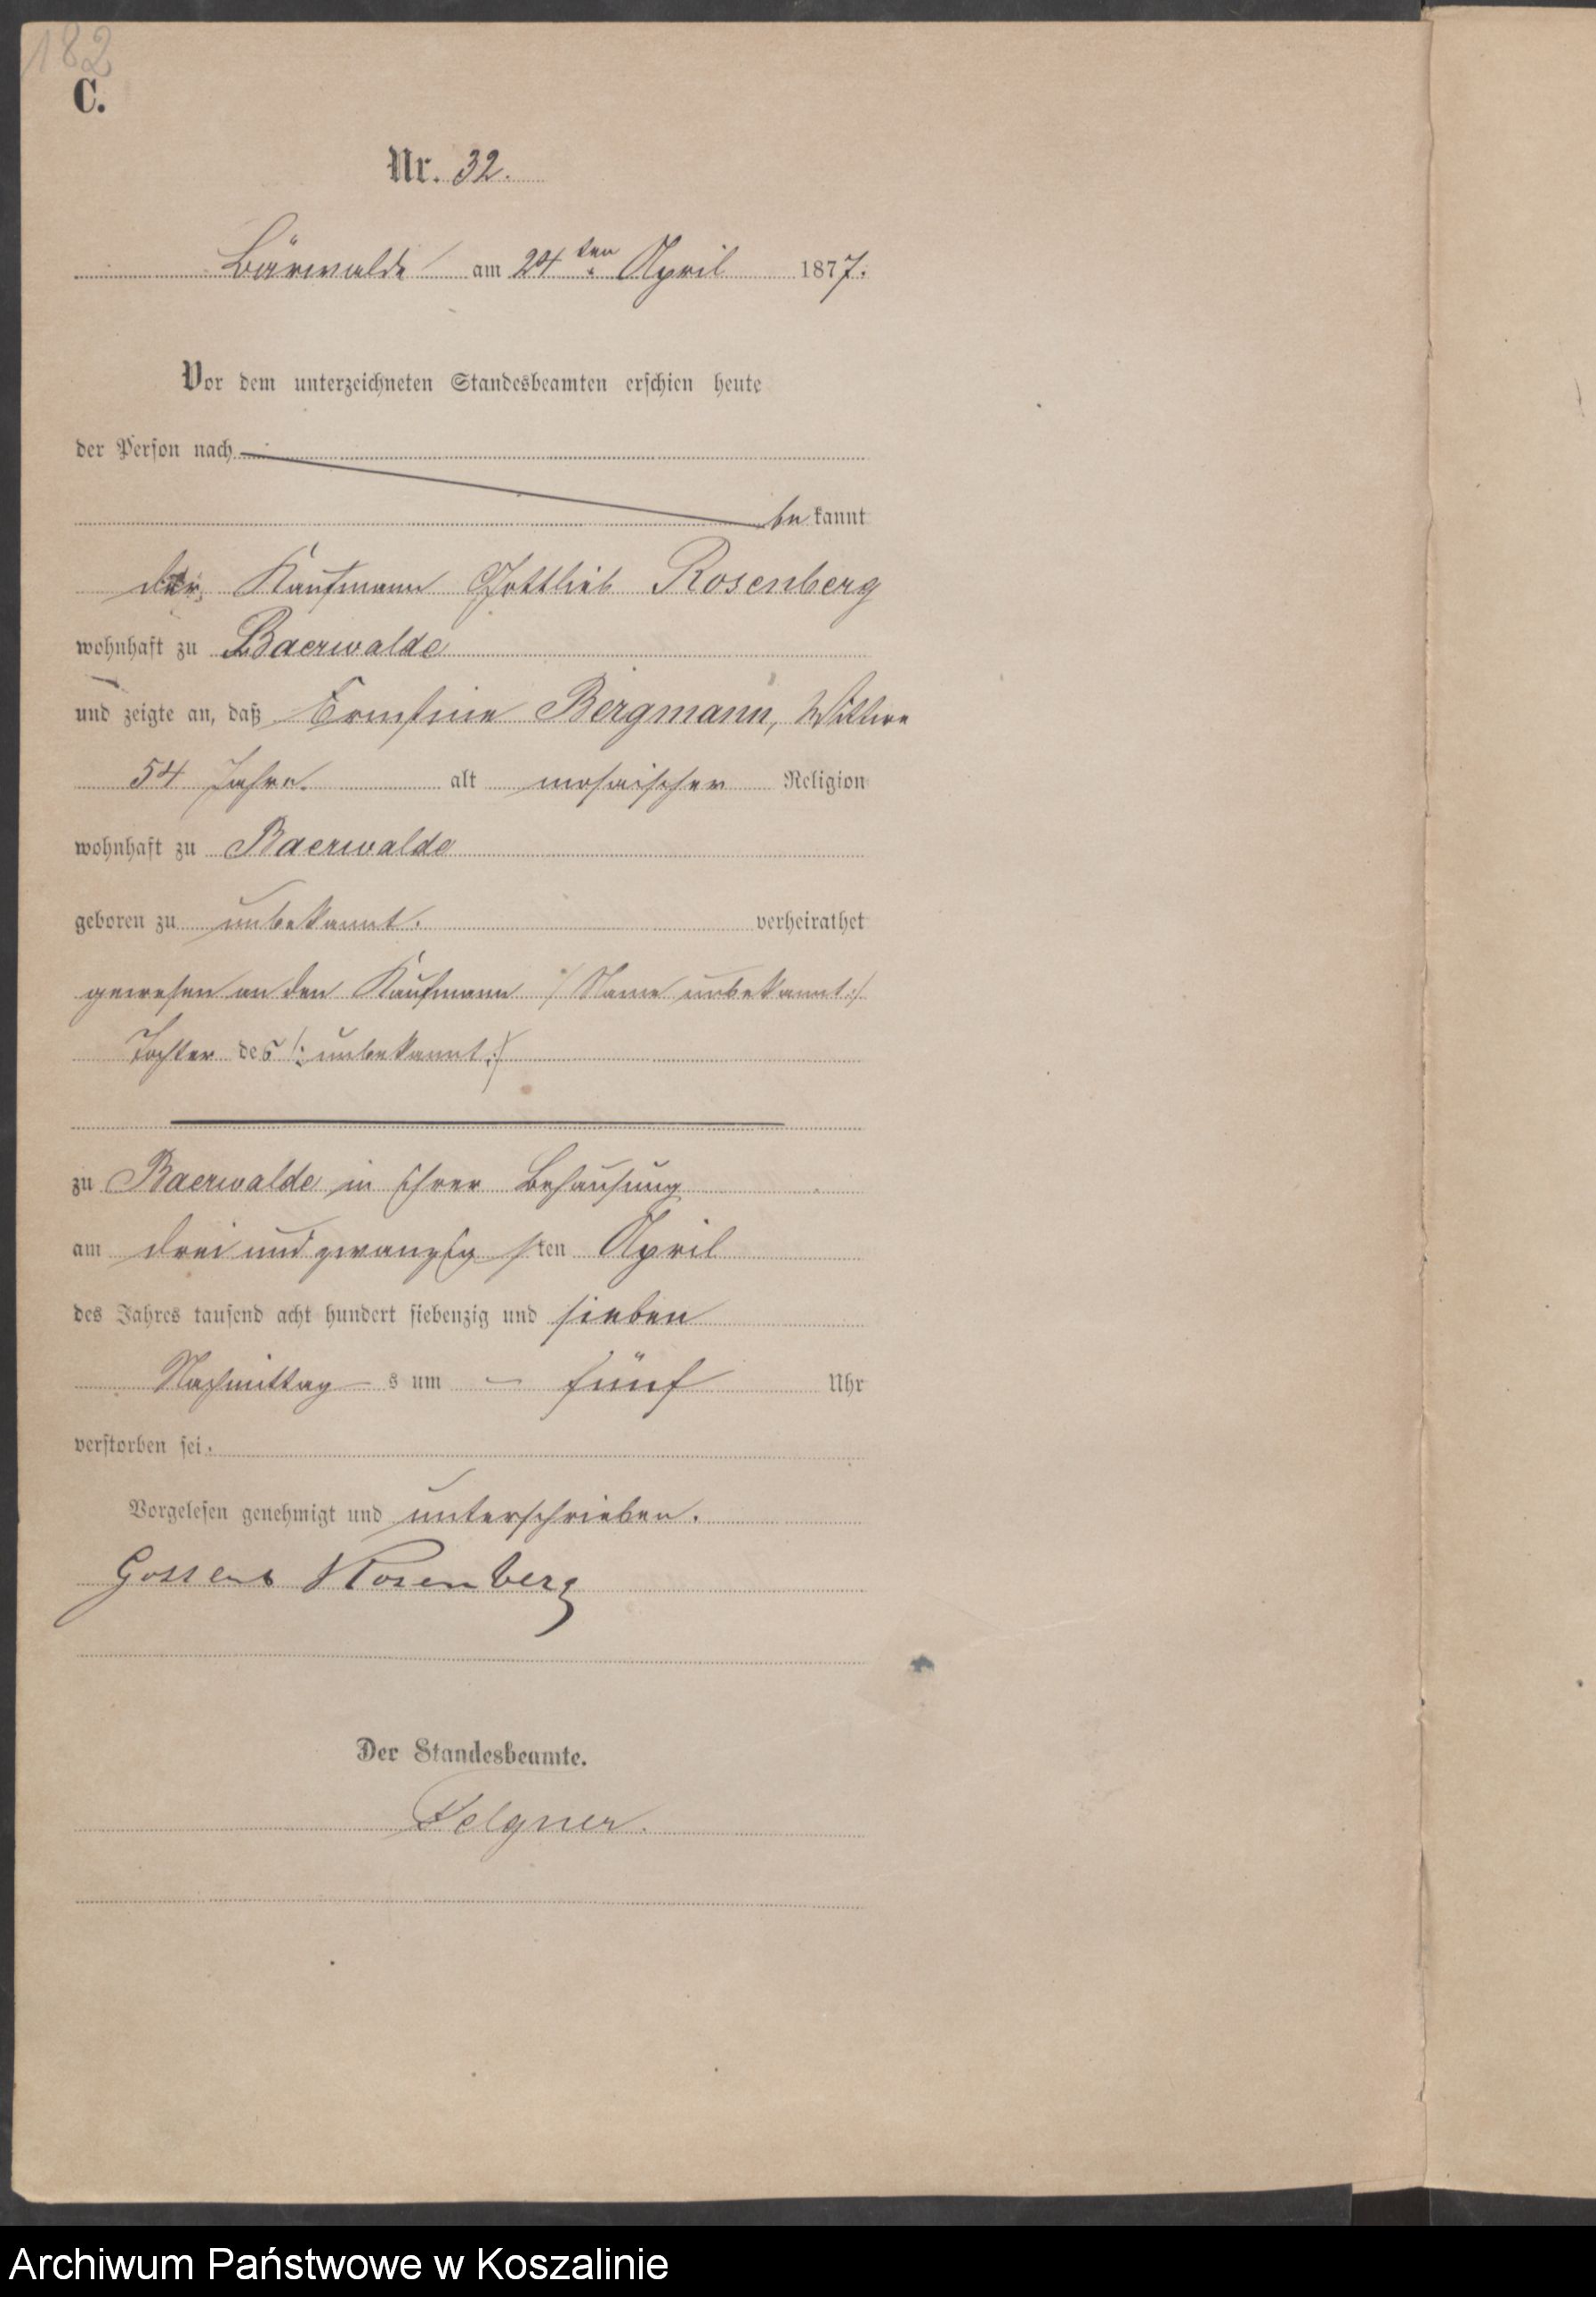 182
C.
Nr. 32.
Bärwalde am 24ten April 1877.
Vor dem unterzeichneten Standesbeamten erschien heute
der Person nach
bekannt
der Kaufmann Gottlieb Rosenberg
wohnhaft zu Baerwalde
und zeigte an, daß Ernstine Bergmann, Wittwe
54 Jahre. alt mosaischer Religion
wohnhaft zu Baerwalde
geboren zu unbekannt. verheirathet
gewesen an den Kaufmann /: Name unbekannt :/
Tochter des /: unbekannt :/
zu Baerwalde in ihrer Behausung
am drei und zwanzigsten April
des Jahres tausend acht hundert siebenzig und sieben
Nachmittags um fünf Uhr
verstorben sei.
Vorgelesen genehmigt und unterschrieben.
Rosenberg
Der Standesbeamte.
Felgner.
Archiwum Państwowe w Koszalinie